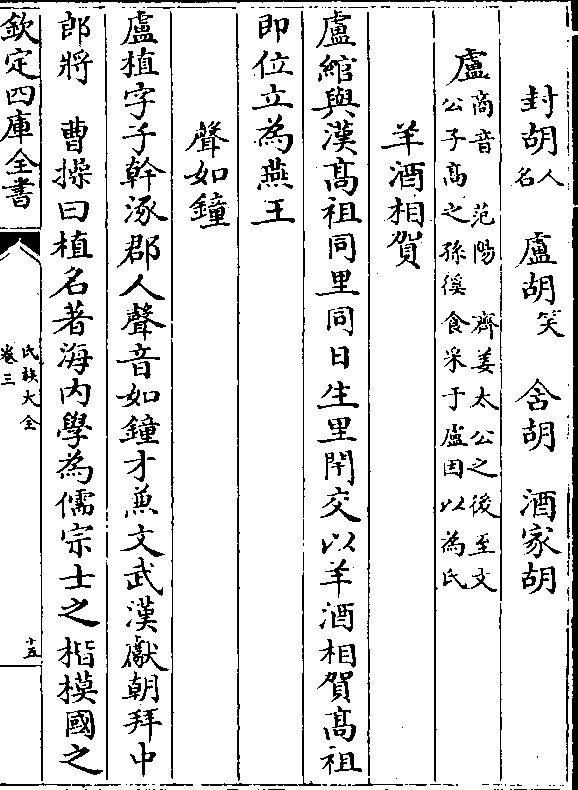 封胡人名　盧胡笑　含胡　酒家胡
盧商音　范陽　齊姜太公之後至文
公子高之孫傒食采于盧因以為氏
羊酒相賀
盧綰與漢髙祖同里同日生里閈交以羊酒相賀髙祖
即位立為燕王
聲如鐘
盧植字子幹涿郡人聲音如鐘才兼文武漢獻朝拜中
郎將　曹操曰植名著海内學為儒宗士之楷模國之
欽定四庫全書
氏族大全
卷三
十五